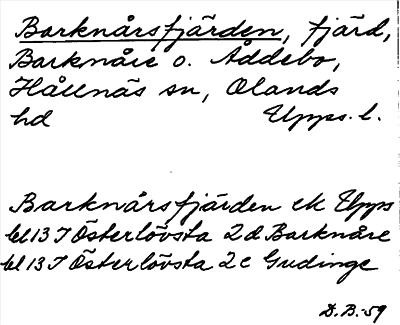 Barknårsfjärden, fjärd,
Barknåre o. Åddebo,
Hållnäs sn, Olands
hd Upps. l.
Barknårsfjärden ek Upps
bl 13 I Österlövsta 2d Barknåre
bl 13 I Österlövsta 2c Gudinge
D.B. -59